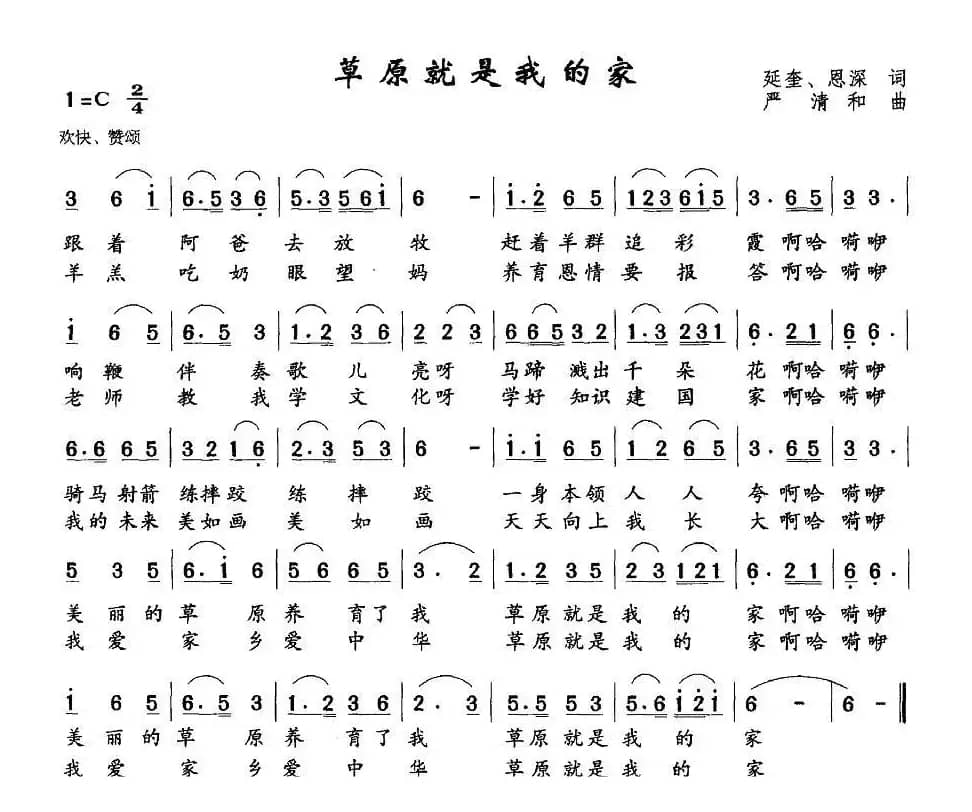 草原就是我的家
1=C 2/4
延奎、恩深 词
严 清和 曲
欢快、赞颂
3 6 i | 6.5 3 6 | 5.3 5 6 i | 6 - | i.2 6 5 | 1 2 3 6 i 5 | 3.6 5 | 3 3. |
跟着 阿爸去放牧 赶着羊群追彩 霞啊哈嗬咿
羊羔 吃奶眼望妈 养育恩情要报 答啊哈嗬咿
i 6 5 | 6.5 3 | 1.2 3 6 | 2 2 3 | 6 6 5 3 2 | 1.3 2 3 1 | 6.2 1 | 6 6. |
响鞭 伴奏歌儿 亮呀 马蹄溅出千朵 花啊哈嗬咿
老师 教我学文 化呀 学好知识建国 家啊哈嗬咿
6.6 6 5 | 3 2 1 6 | 2.3 5 3 | 6 - | i.i 6 5 | 1 2 6 5 | 3.6 5 | 3 3. |
骑马射箭练摔跤 练摔跤 一身本领人人 夸啊哈嗬咿
我的未来美如画 美如画 天天向上我长 大啊哈嗬咿
5 3 5 | 6.i 6 | 5 6 6 5 | 3. 2 | 1.2 3 5 | 2 3 1 2 1 | 6.2 1 | 6 6. |
美丽的草原养育了我 草原就是我的 家啊哈嗬咿
我爱家乡爱中华 草原就是我的 家啊哈嗬咿
i 6 5 | 6.5 3 | 1.2 3 6 | 2. 3 | 5.5 5 3 | 5.6 i 2 i | 6 - | 6 - ‖
美丽的草原养育了我 草原就是我的 家
我爱家乡爱中华 草原就是我的 家